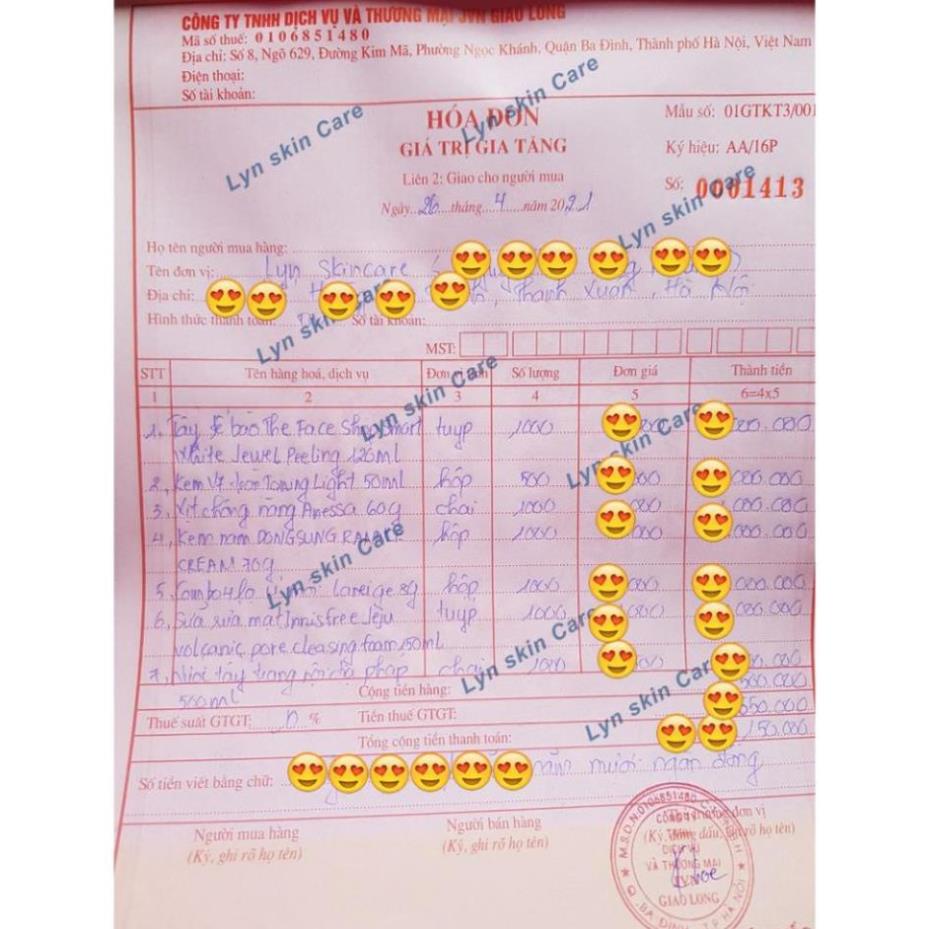 CÔNG TY TNHH DỊCH VỤ VÀ THƯƠNG MẠI JVN GIAO LONG
Mã số thuế: 0106851480
Địa chỉ: Số 8, Ngõ 629, Đường Kim Mã, Phường Ngọc Khánh, Quận Ba Đình, Thành phố Hà Nội, Việt Nam
Điện thoại:
Số tài khoản:
HÓA ĐƠN
GIÁ TRỊ GIA TĂNG
Liên 2: Giao cho người mua
Ngày 26 tháng 4 năm 2021
Mẫu số: 01GTKT3/001
Ký hiệu: AA/16P
Số: 0001413
Họ tên người mua hàng:
Tên đơn vị: Lyn Skincare
Địa chỉ: Thanh Xuân, Hà Nội
Hình thức thanh toán: Số tài khoản:
MST:
STT Tên hàng hoá, dịch vụ Đơn vị tính Số lượng Đơn giá Thành tiền
1 2 3 4 5 6=4x5
1. Tẩy tế bào The Face Shop Smart tuýp 1000 000.000
White Jewel Peeling 120ml
2, Kem V7 Toning Light 50ml hộp 500 000.000
3, Xịt chống nắng Anessa 60g chai 1000 000.000
4, Kem nám DONGSUNG hộp 1000 000.000
CREAM 70g
5, Combo Laneige 8g hộp 1000 000.000
6, Sữa rửa mặt Innisfree Jeju tuýp 1000 000.000
volcanic pore cleasing foam 150ml
7, tẩy trang pháp chai 1000
500ml
Cộng tiền hàng:
Thuế suất GTGT: % Tiền thuế GTGT: 650.000
Tổng cộng tiền thanh toán: 150.000
Số tiền viết bằng chữ: năm mươi ngàn đồng
Người mua hàng
(Ký, ghi rõ họ tên)
Người bán hàng
(Ký, ghi rõ họ tên)
Thủ trưởng đơn vị
(Ký, đóng dấu, ghi rõ họ tên)
M.S.D.N:0106851480
CÔNG TY
TNHH
DỊCH VỤ
VÀ THƯƠNG MẠI
JVN
GIAO LONG
Q. BA ĐÌNH - T.P HÀ NỘI
Lyn skin Care
Lyn skin Care
Lyn skin Care
Lyn skin Care
Lyn skin Care
Lyn skin Care
Lyn skin Care
Lyn skin Care
Lyn skin Care